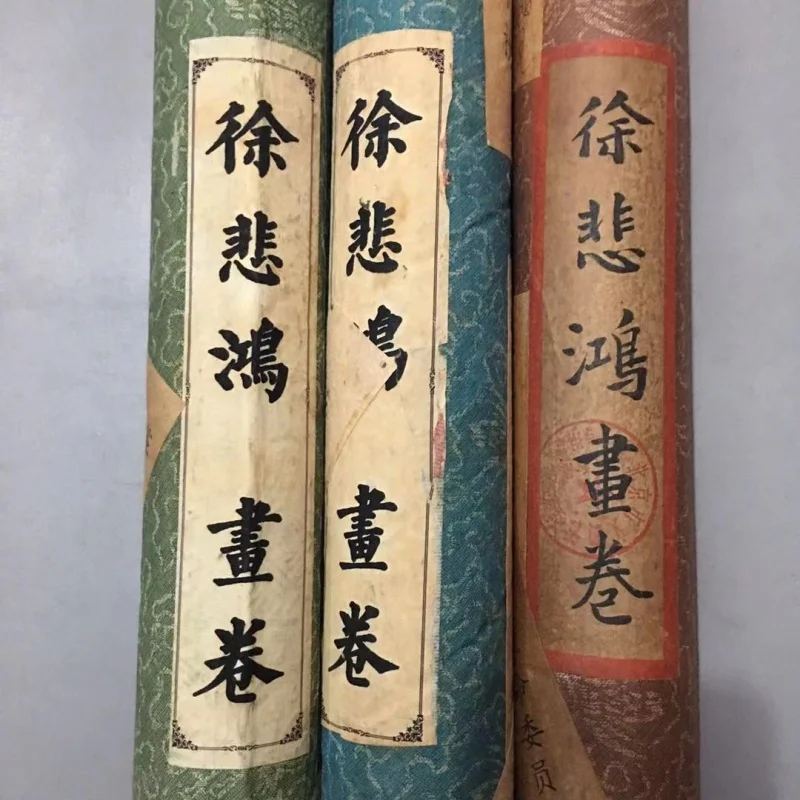 徐悲鴻畫卷
徐悲鴻畫卷
徐悲鴻畫卷
委員